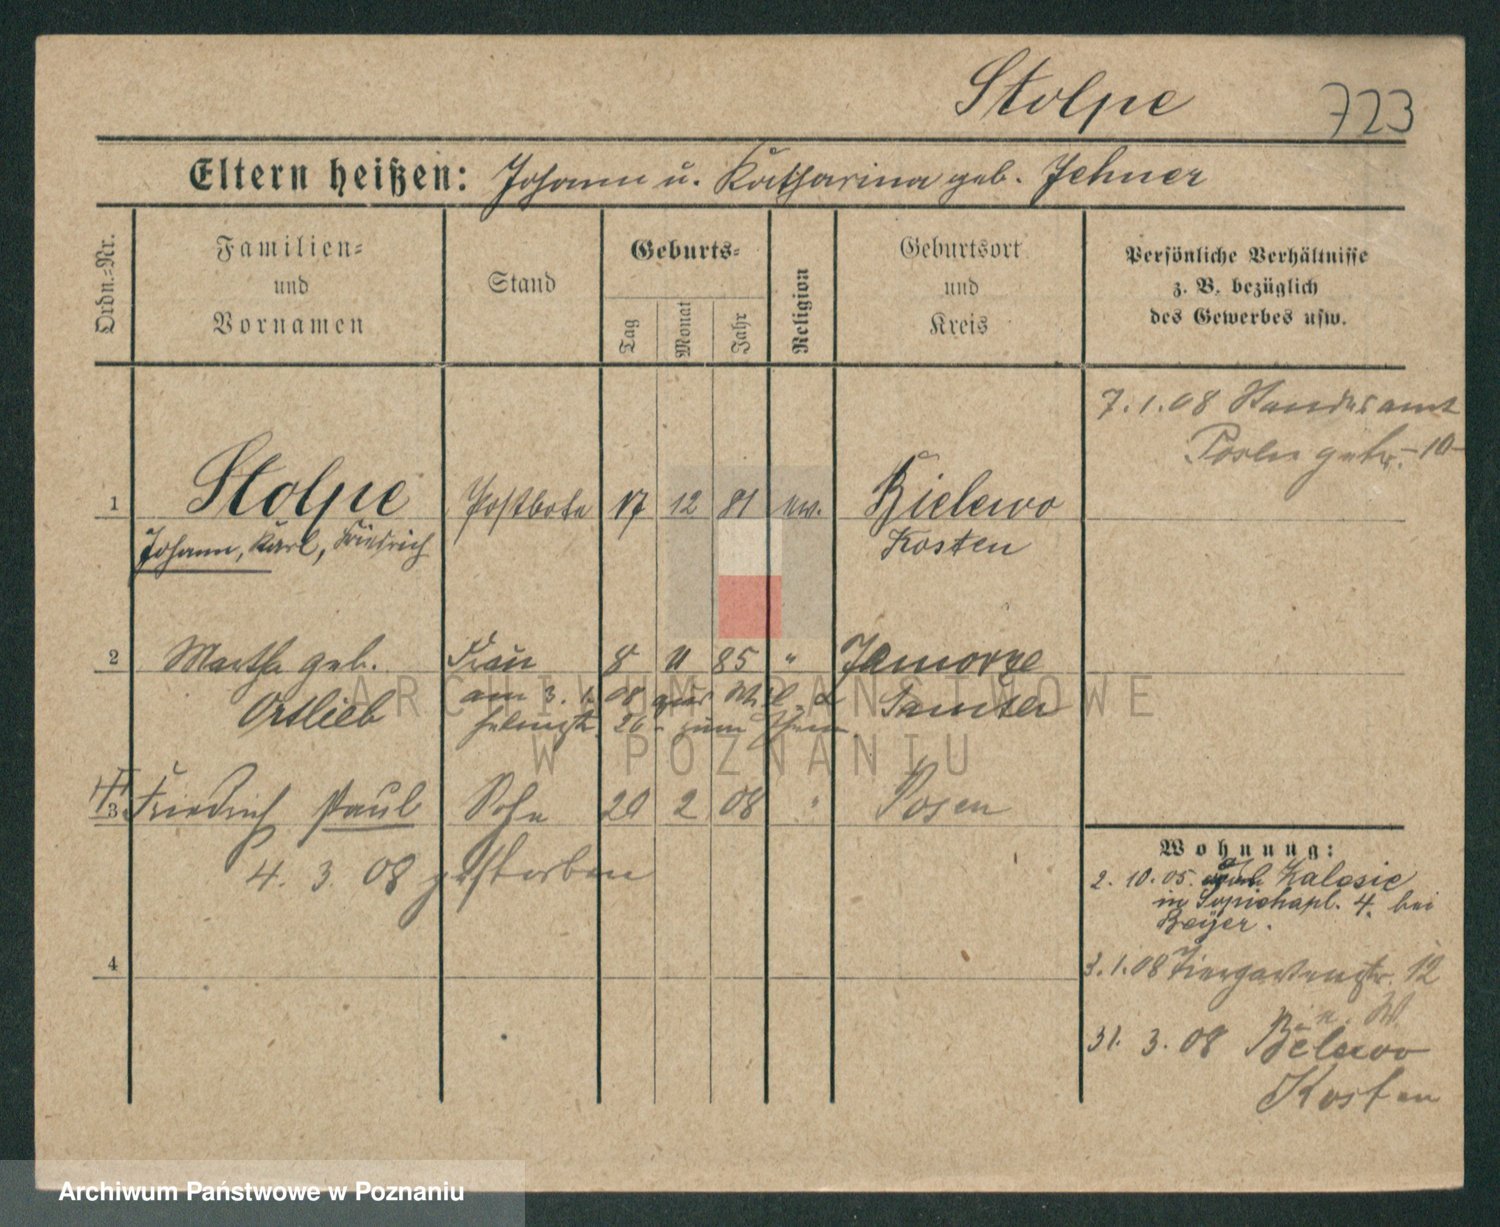 Stolpe 723
Eltern heißen: Johann u. Katharina geb. Jehner
Ordn.-Nr.
Familien-
und
Vornamen
Stand
Geburts-
Tag
Monat
Jahr
Religion
Geburtsort
und
Kreis
Persönliche Verhältnisse
z. B. bezüglich
des Gewerbes usw.
7.1.08 Standesamt
Posen getr. -10-
1 Stolpe Postbote 17 12 81 ev. Bielewo
Johann, Karl, Friedrich Kosten
2 Martha geb. Frau 8 11 85 " 
Ortlieb am 3. 1. 08 Samter
26 zum
3 Friedrich Paul Sohn 20 2 08 " Posen
4. 3. 08 gestorben
4
Wohnung:
2. 10. 05.
in Sapiehapl. 4. bei
Beyer.
3.1.08 Tiergartenstr. 12
n. W.
31. 3. 08 Bielewo
Kosten
ARCHIWUM PAŃSTWOWE
W POZNANIU
Archiwum Państwowe w Poznaniu